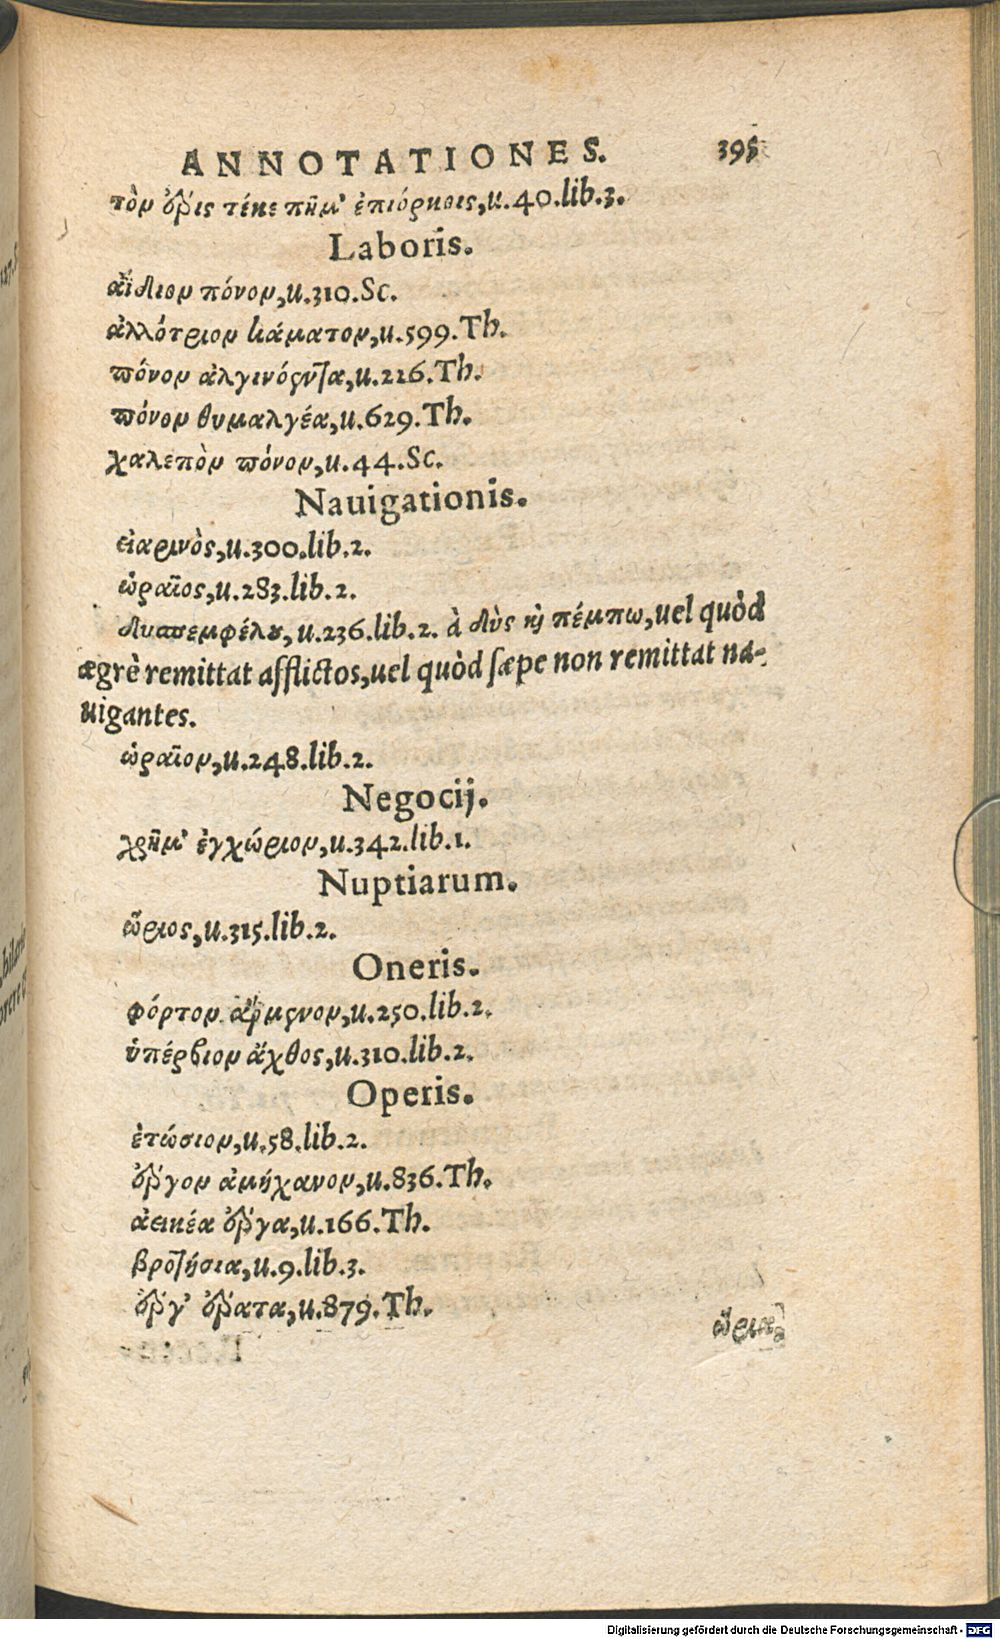 ANNOTATIONES. 395
τὸν ἔρις τέκε πῆμ' ἐπιόρκοις, u.40.lib.3.
Laboris.
ἀΐδιον πόνον, u.310.Sc.
ἀλλότριον κάματον, u.599.Th.
πόνον ἀλγινόεντα, u.226.Th.
πόνον θυμαλγέα, u.629.Th.
χαλεπὸν πόνον, u.44.Sc.
Nauigationis.
εἰαρινὸς, u.300.lib.2.
ὡραῖος, u.283.lib.2.
δυσπεμφέλου, u.236.lib.2. à δὺς καὶ πέμπω, uel quòd
ægrè remittat afflictos, uel quòd sæpe non remittat na-
uigantes.
ὡραῖον, u.248.lib.2.
Negocij.
χρῆμ' ἐγχώριον, u.342.lib.1.
Nuptiarum.
ὥριος, u.315.lib.2.
Oneris.
φόρτον ἄρμενον, u.250.lib.2.
ὑπέρβιον ἄχθος, u.310.lib.2.
Operis.
ἐτώσιον, u.58.lib.2.
ἔργον ἀμήχανον, u.836.Th.
ἀεικέα ἔργα, u.166.Th.
βροτήσια, u.9.lib.3.
ἔργ' ἔρατα, u.879.Th.
ὥρια
Digitalisierung gefördert durch die Deutsche Forschungsgemeinschaft - DFG